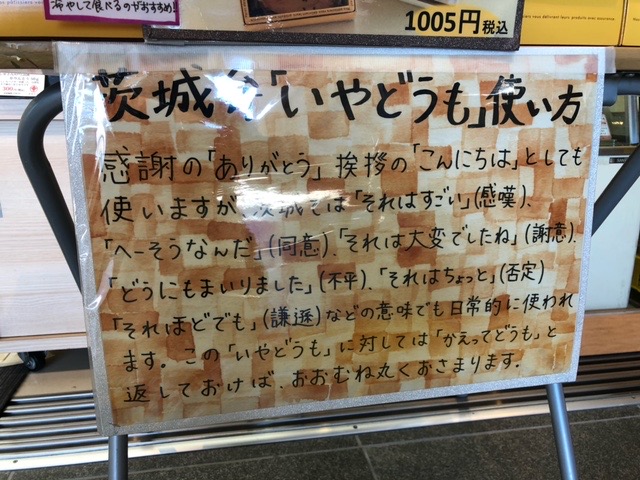 冷やして食べるのがおすすめ!
1005円税込
茨城弁「いやどうも」使い方
感謝の「ありがとう」挨拶の「こんにちは」としても
使いますが、茨城では「それはすごい」(感嘆)、
「へーそうなんだ」(同意)、「それは大変でしたね」(謝意)、
「どうにもまいりました」(不平)、「それはちょっと」(否定)
「それほどでも」(謙遜)などの意味でも日常的に使われ
ます。この「いやどうも」に対しては「かえってどうも」と
返しておけば、おおむね丸くおさまります。